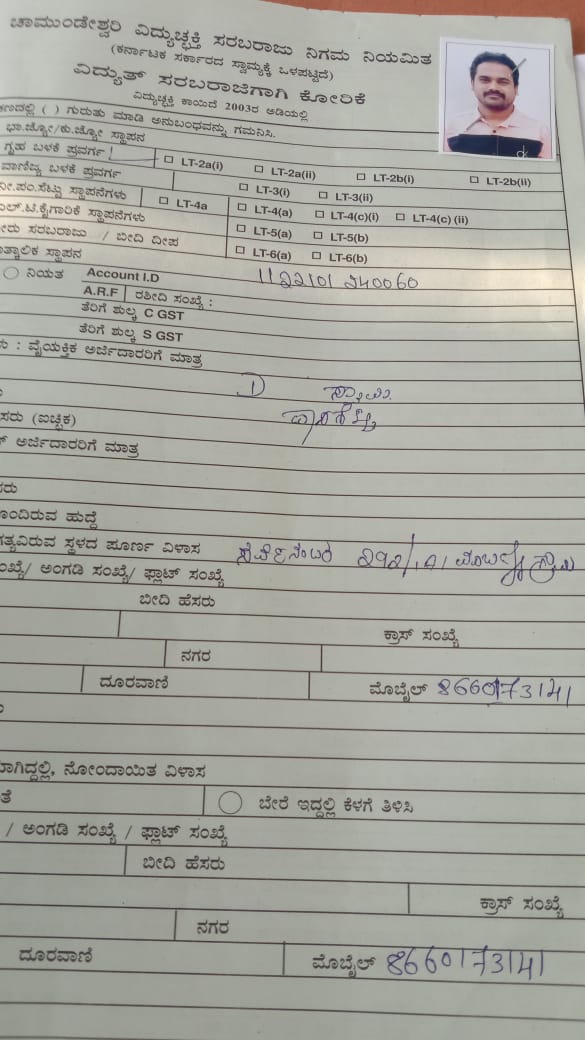 ಚಾಮುಂಡೇಶ್ವರಿ ವಿದ್ಯುಚ್ಛಕ್ತಿ ಸರಬರಾಜು ನಿಗಮ ನಿಯಮಿತ
(ಕರ್ನಾಟಕ ಸರ್ಕಾರದ ಸ್ವಾಮ್ಯಕ್ಕೆ ಒಳಪಟ್ಟಿದೆ)
ವಿದ್ಯುತ್ ಸರಬರಾಜಿಗಾಗಿ ಕೋರಿಕೆ
ವಿದ್ಯುಚ್ಛಕ್ತಿ ಕಾಯಿದೆ 2003ರ ಅಡಿಯಲ್ಲಿ
( ) ಗುರುತು ಮಾಡಿ ಅನುಬಂಧವನ್ನು ಗಮನಿಸಿ.
ಭಾ.ಜ್ಯೋ/ಕು.ಜ್ಯೋ ಸ್ಥಾಪನ
ಗೃಹ ಬಳಕೆ ಪ್ರವರ್ಗ LT-2a(i) LT-2a(ii) LT-2b(i) LT-2b(ii)
ವಾಣಿಜ್ಯ ಬಳಕೆ ಪ್ರವರ್ಗ LT-3(i) LT-3(ii)
ನೀ.ಪಂ.ಸೆಟ್ಟು ಸ್ಥಾಪನೆಗಳು LT-4a LT-4(a) LT-4(c)(i) LT-4(c) (ii)
ಎಲ್.ಟಿ.ಕೈಗಾರಿಕೆ ಸ್ಥಾಪನೆಗಳು LT-5(a) LT-5(b)
ಸರಬರಾಜು / ಬೀದಿ ದೀಪ LT-6(a) LT-6(b)
ಸ್ಥಾಪನ
ನಿಯತ Account I.D 1122101240060
A.R.F ರಶೀದಿ ಸಂಖ್ಯೆ :
ತೆರಿಗೆ ಶುಲ್ಕ C GST
ತೆರಿಗೆ ಶುಲ್ಕ S GST
: ವೈಯಕ್ತಿಕ ಅರ್ಜಿದಾರರಿಗೆ ಮಾತ್ರ
(ಐಚ್ಛಿಕ)
ಅರ್ಜಿದಾರರಿಗೆ ಮಾತ್ರ
ಹುದ್ದೆ
ಸ್ಥಳದ ಪೂರ್ಣ ವಿಳಾಸ
ಅಂಗಡಿ ಸಂಖ್ಯೆ/ ಫ್ಲಾಟ್ ಸಂಖ್ಯೆ
ಬೀದಿ ಹೆಸರು
ಕ್ರಾಸ್ ಸಂಖ್ಯೆ
ನಗರ
ದೂರವಾಣಿ ಮೊಬೈಲ್ 8660173141
ನೋಂದಾಯಿತ ವಿಳಾಸ
ಬೇರೆ ಇದ್ದಲ್ಲಿ ಕೆಳಗೆ ತಿಳಿಸಿ
/ ಅಂಗಡಿ ಸಂಖ್ಯೆ / ಫ್ಲಾಟ್ ಸಂಖ್ಯೆ
ಬೀದಿ ಹೆಸರು
ಕ್ರಾಸ್ ಸಂಖ್ಯೆ
ನಗರ
ದೂರವಾಣಿ ಮೊಬೈಲ್ 8660173141